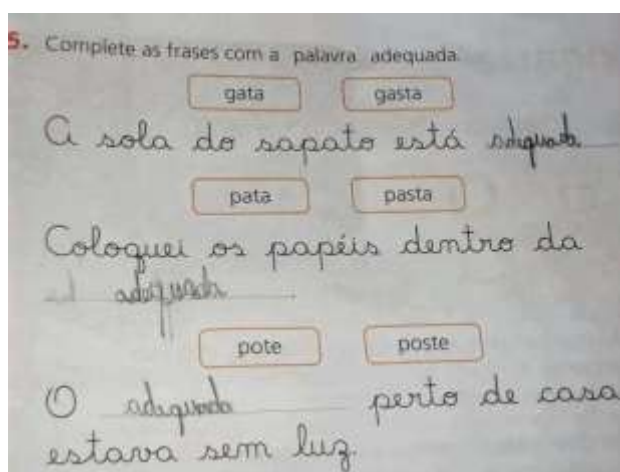 5. Complete as frases com a palavra adequada.
gata gasta
A sola do sapato está adequada
pata pasta
Coloquei os papéis dentro da
adequada.
pote poste
O adequada perto de casa
estava sem luz.